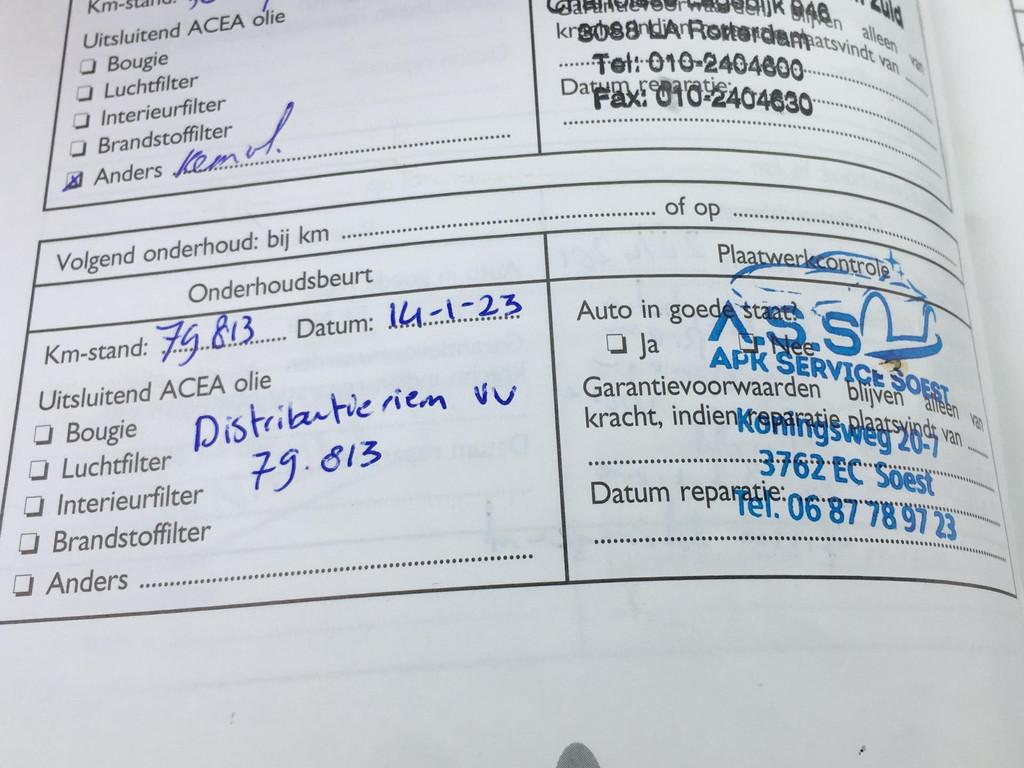 Km-stand:
Uitsluitend ACEA olie
Bougie
Luchtfilter
Interieurfilter
Brandstoffilter
Anders
3088 LA Rotterdam
Tel: 010-2404600
Datum reparatie:
Fax: 010-2404630
Volgend onderhoud: bij km of op
Onderhoudsbeurt
Plaatwerkcontrole
Km-stand: 79.813 Datum: 14-1-23
Uitsluitend ACEA olie
Bougie
Luchtfilter
Interieurfilter
Brandstoffilter
Anders
Distributieriem VV
79.813
Auto in goede staat?
Ja Nee
Garantievoorwaarden blijven alleen van
kracht, indien reparatie plaatsvindt van
Datum reparatie:
A.S.S
APK SERVICE SOEST
Koningsweg 20-7
3762 EC Soest
Tel. 06 87 78 97 23